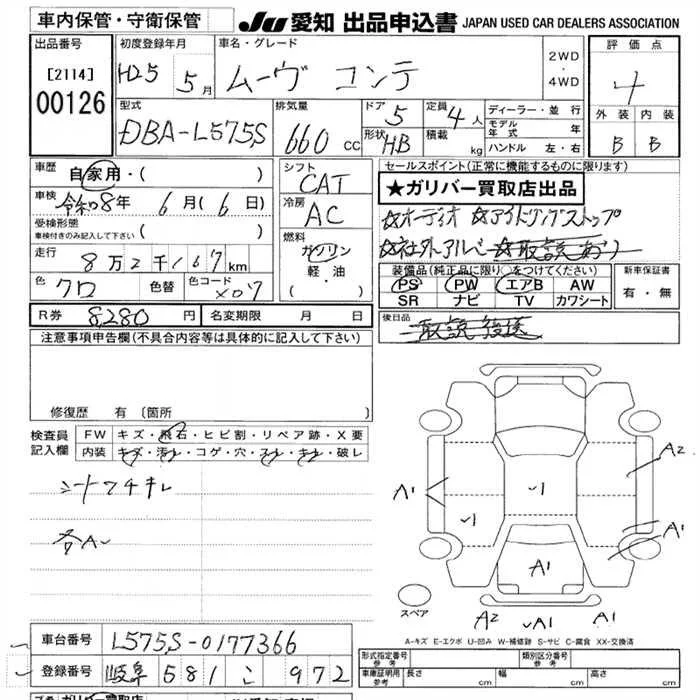 車内保管・守衛保管
JU 愛知 出品申込書 JAPAN USED CAR DEALERS ASSOCIATION
出品番号 初度登録年月 車名・グレード 評価点
[2114] H25 5月 ムーヴ コンテ 2WD・4WD 4
00126
型式 排気量 ドア 5 定員 4人 ディーラー・並行 外装 内装
DBA-L575S 660cc 形状 HB 積載 kg モデル年式 年 B B
ハンドル 左・右
車歴 自家用・( ) シフト CAT セールスポイント(正常に機能するものに限ります)
車検 令和8年6月(6日) 冷房 AC ★ガリバー買取店出品
受検形態 ( )
車検付きのみ記入して下さい
☆オーディオ ☆アイドリングストップ
☆社外アルミ ☆取説あり
走行 8万2千167km 燃料 ガソリン 軽油・( )
装備品(純正品に限り○をつけてください) 新車保証書
PS PW エアB AW 有・無
SR ナビ TV カワシート
色 クロ 色替 色コード X07
R券 8280円 名変期限 月 日 後日品 取説後送
注意事項申告欄(不具合内容等は具体的に記入して下さい)
修復歴 有 〔箇所 〕
検査員記入欄 FW キズ・飛石・ヒビ割・リペア跡・X要
内装 キズ・汚レ・コゲ・穴・スレ・キレ・破レ
シートマチキレ
各A
A2
A1
A1
A1
A2 A1
スペア
A-キズ E-エクボ U-凹み W-補修跡 S-サビ C-腐食 XX-交換済
車台番号 L575S-0177366
登録番号 岐阜 581 こ 972
形式指定番号 参考 類別区分番号 参考
車庫証明用 参考 長さ cm 幅 cm 高さ cm
ガリバー買取店